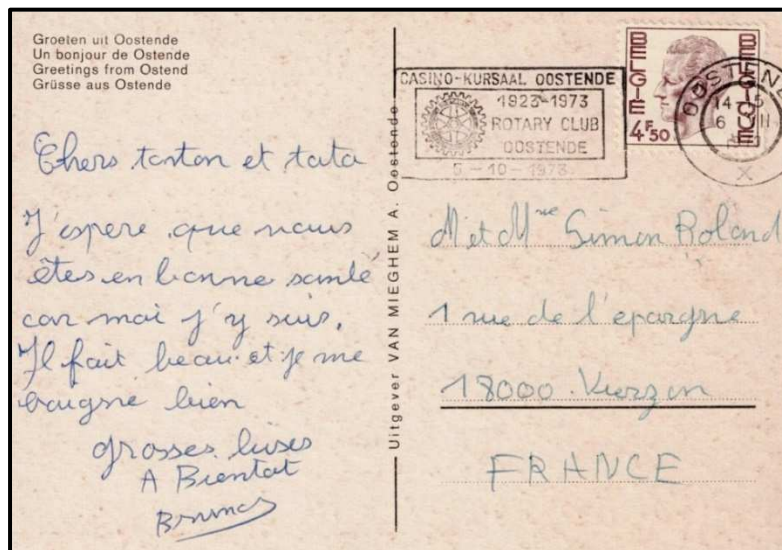 Groeten uit Oostende
Un bonjour de Ostende
Greetings from Ostend
Grüsse aus Ostende
Chers tonton et tata
J'espere que vous
êtes en bonne santé
car moi j'y suis,
Il fait beau et je me
baigne bien
grosses bises
A Bientot
Bruno
Uitgever VAN MIEGHEM A. Oostende
CASINO-KURSAAL OOSTENDE
1923-1973
ROTARY CLUB
OOSTENDE
5-10-1973
BELGIE
BELGIQUE
4F50
OOSTENDE
14-15
6
X
M et Mme Simon Roland
1 rue de l'epargne
18000 Vierzon
FRANCE